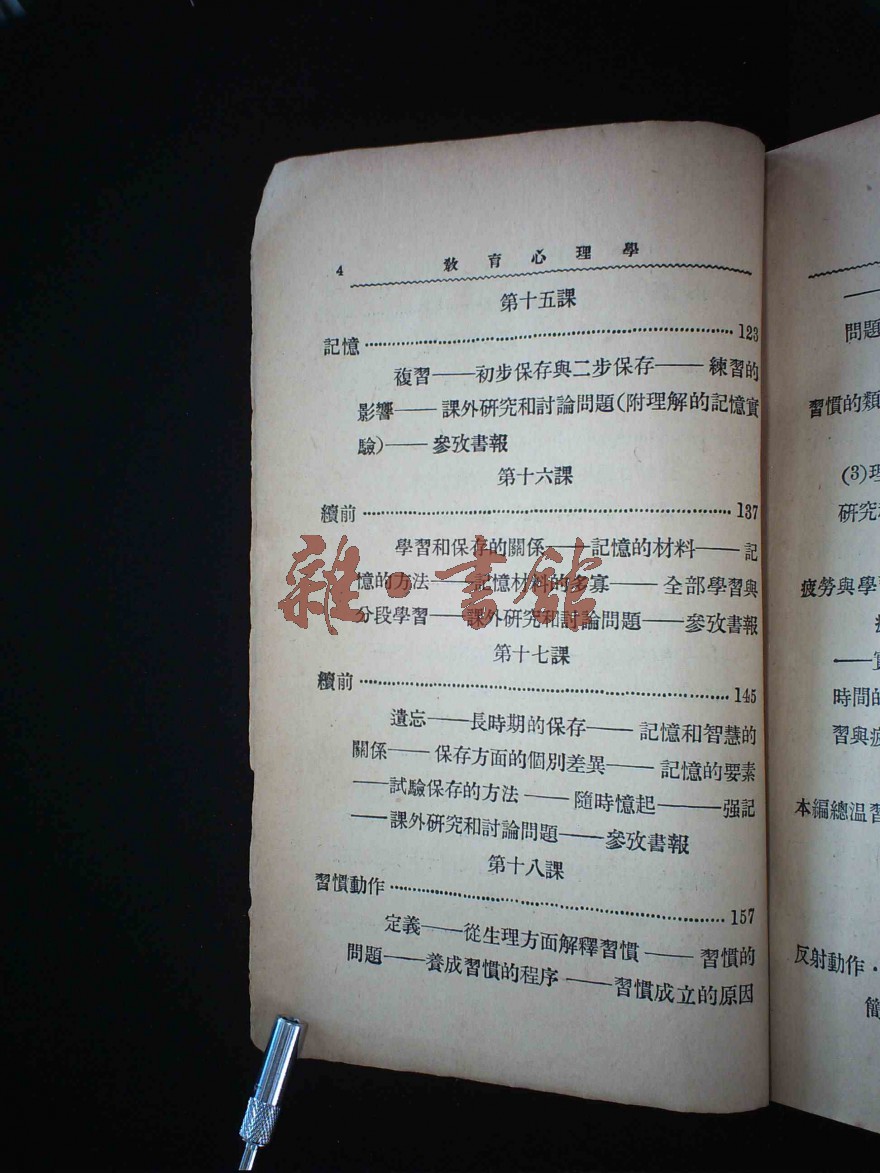 4 敎育心理學
第十五課
記憶 123
複習——初步保存與二步保存——練習的
影響——課外硏究和討論問題(附理解的記憶實
驗)——參攷書報
第十六課
續前 137
學習和保存的關係——記憶的材料——記
憶的方法——記憶材料的多寡——全部學習與
分段學習——課外硏究和討論問題——參攷書報
第十七課
續前 145
遺忘——長時期的保存——記憶和智慧的
關係——保存方面的個別差異——記憶的要素
——試驗保存的方法——隨時憶起——强記
——課外硏究和討論問題——參攷書報
第十八課
習慣動作 157
定義——從生理方面解釋習慣——習慣的
問題——養成習慣的程序——習慣成立的原因
雜·書館
——
問題
習慣的類
(3)理
硏究和
疲勞與學習
——實
時間的
習與疲
本編總温習
反射動作
簡